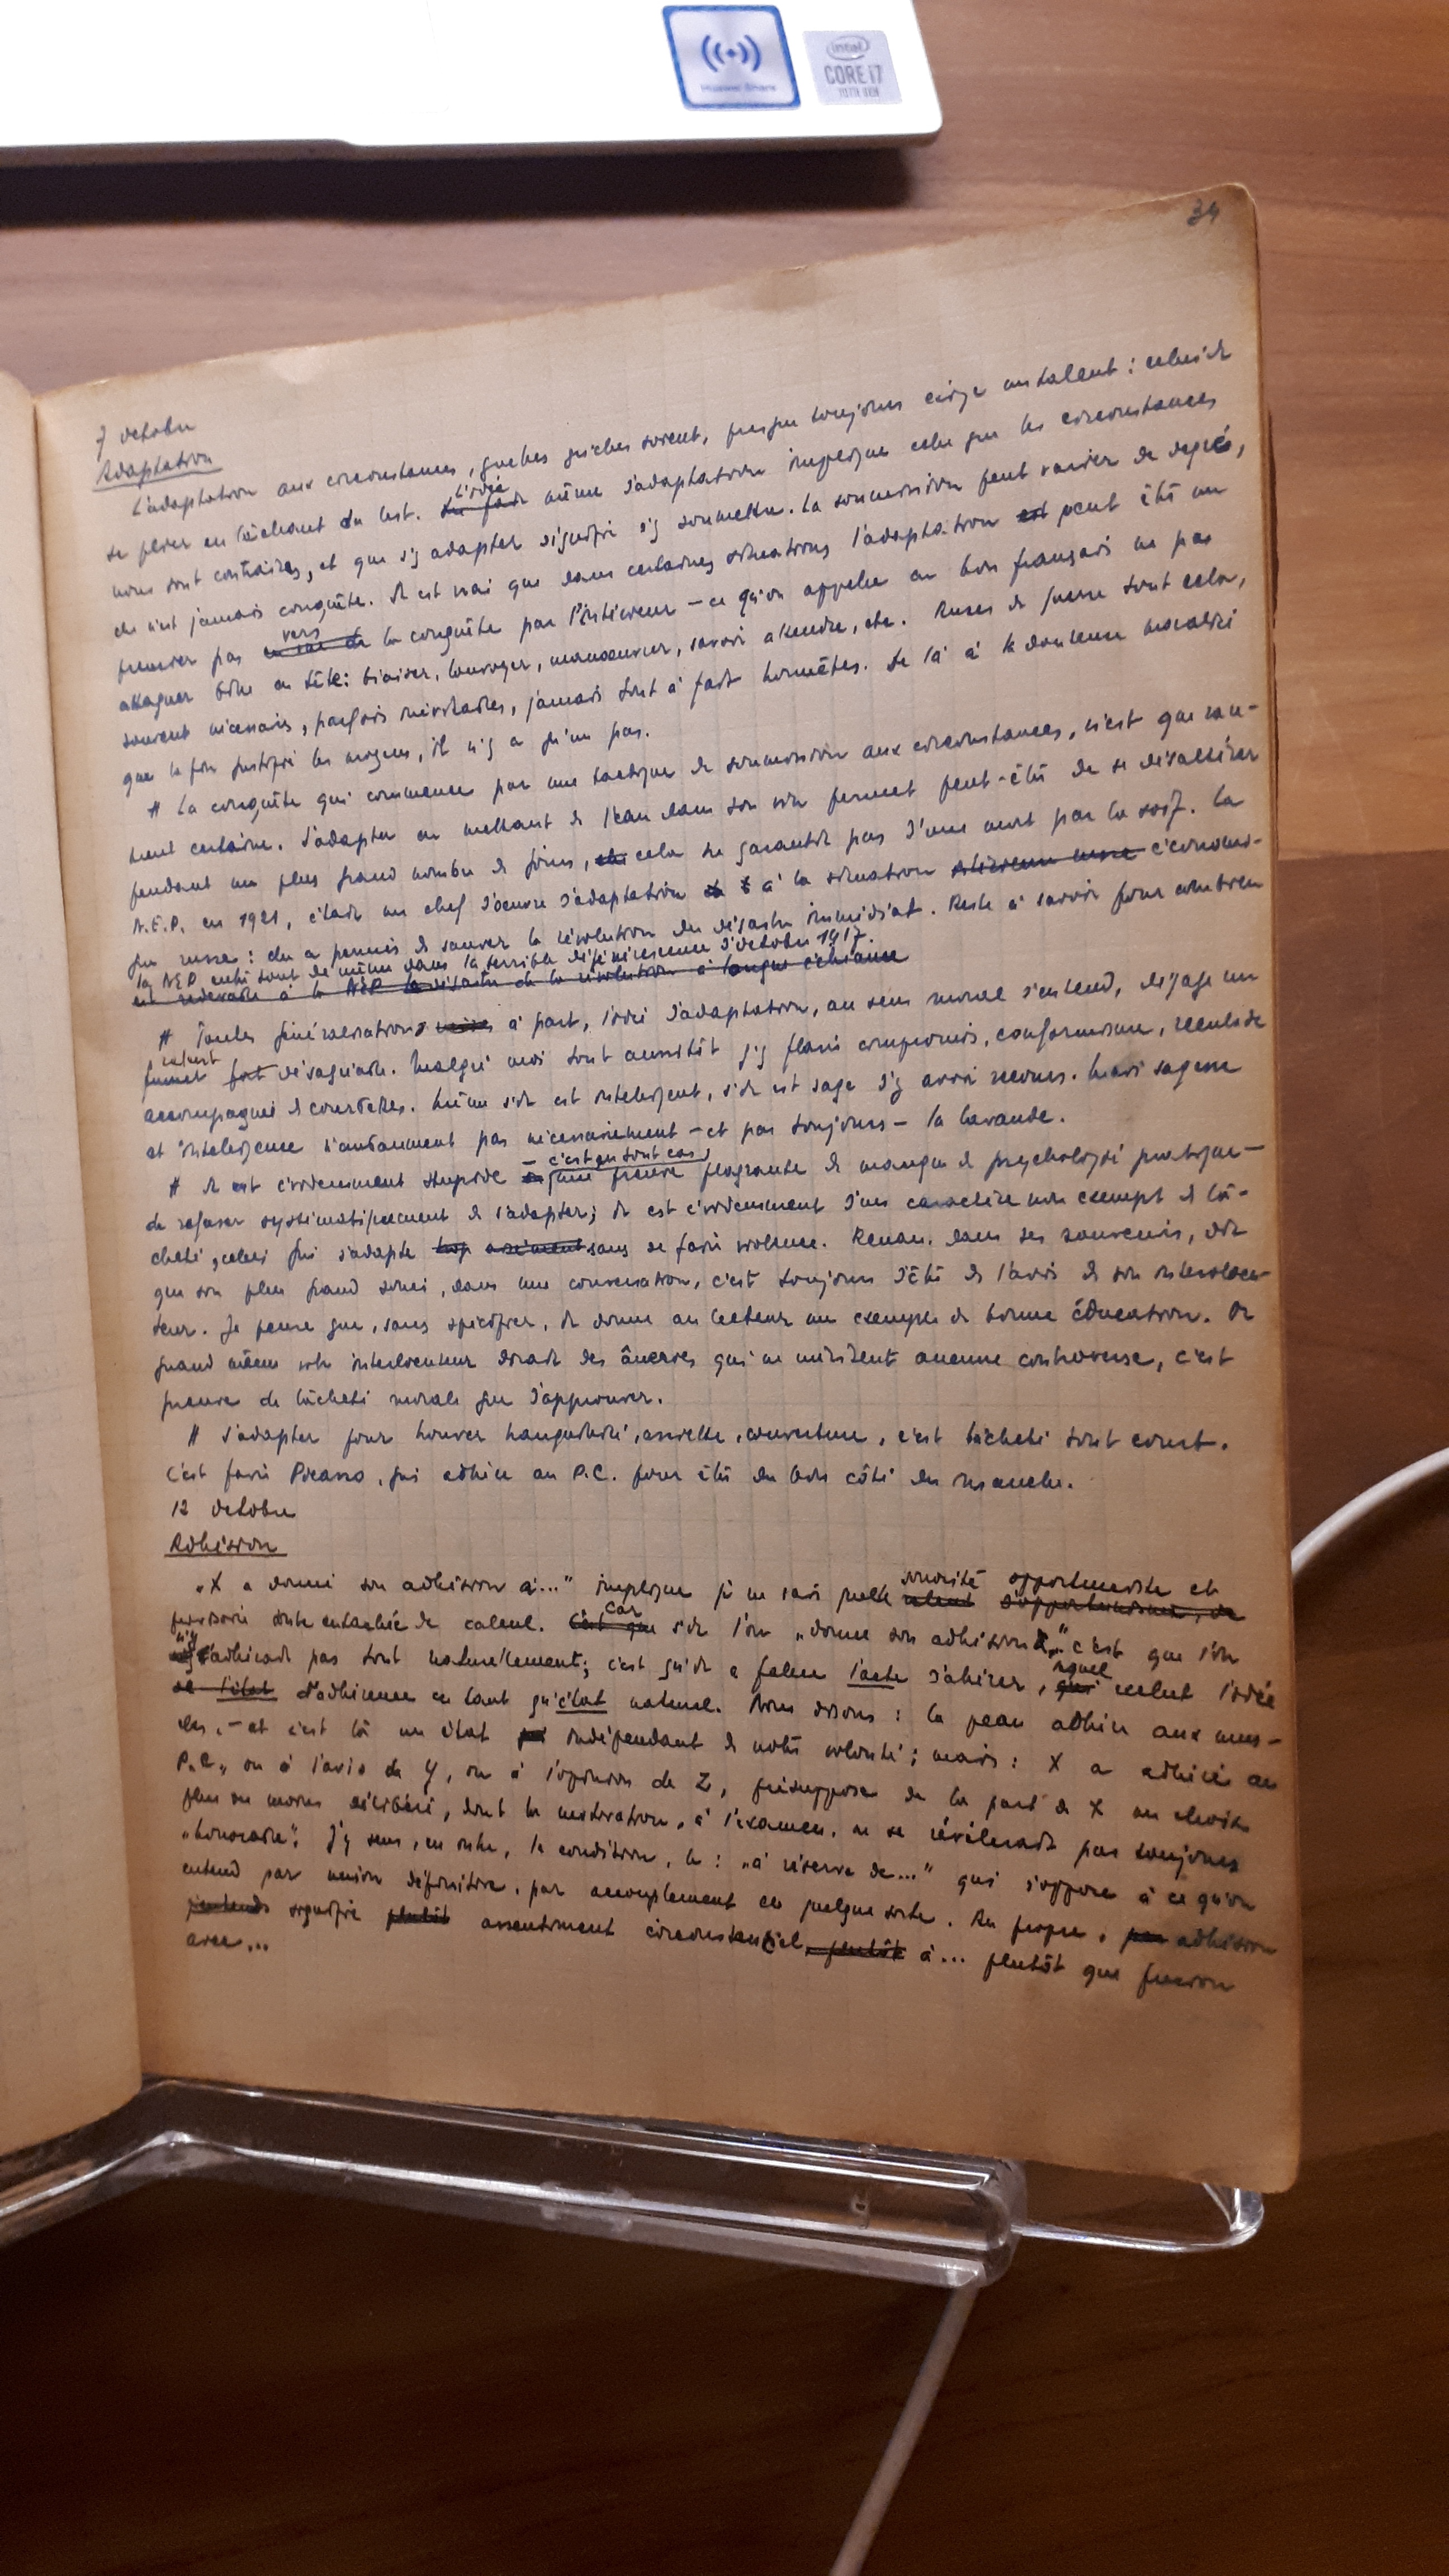 Huawei Share
intel
CORE i7
10TH GEN
34
7 octobre
Adaptation
L'adaptation aux circonstances, quelles qu'elles soient, presque toujours exige un talent : celui de
se plier en lâchant du lest. L'idée même d'adaptation implique celle que les circonstances
nous sont contraires, et que s'y adapter signifie s'y soumettre. La soumission peut varier de degrés,
elle n'est jamais conquête. Il est vrai que dans certaines situations l'adaptation est peut être un
premier pas vers la conquête par l'intérieur – ce qu'on appelle en bon français ne pas
attaquer bille en tête : biaiser, louvoyer, manoeuvrer, savoir attendre, etc. Ruses de guerre tout cela,
souvent nécessaires, parfois inévitables, jamais tout à fait honnêtes. De là à la douteuse moralité
que la fin justifie les moyens, il n'y a qu'un pas.
# La conquête qui commence par une tactique de soumission aux circonstances, n'est que rare-
ment certaine. S'adapter en mettant de l'eau dans son vin permet peut-être de se désaltérer
pendant un plus grand nombre de jours, cela ne garantit pas d'une mort par la soif. La
N.E.P. en 1921, c'était un chef d'oeuvre d'adaptation à la situation économi-
que russe : elle a permis de sauver la révolution du désastre immédiat. Reste à savoir pour combien
la NEP entre tout de même dans la terrible dégénérescence d'octobre 1917.
est redevable à la NEP le désastre de la révolution à longue échéance
# Toutes généralisations à part, l'idée d'adaptation, au sens moral s'entend, dégage un
fumet fort désagréable. Malgré moi tout aussitôt j'y flaire compromis, conformisme, reculade
accompagnée de courbettes. Même s'il est intelligent, s'il est sage d'y avoir recours. Mais sagesse
et intelligence n'entament pas nécessairement – et pas toujours – la bavarde.
# Il est évidemment stupide – c'est en tout cas une preuve flagrante de manque de psychologie pratique –
de refuser systématiquement de s'adapter ; il est évidemment d'un caractère non exempt de lâ-
cheté, celui qui s'adapte trop aisément sans se faire violence. Renan, dans ses souvenirs, dit
que son plus grand souci, dans une conversation, c'est toujours d'être de l'avis de son interlocu-
teur. Je pense que, sans spécifier, il donne au lecteur un exemple de bonne éducation. Or
quand même votre interlocuteur dirait des âneries qui ne méritent aucune controverse, c'est
preuve de lâcheté morale que d'approuver.
# S'adapter pour trouver tranquillité, assiette, couverture, c'est lâcheté tout court.
C'est faire Picasso, qui adhère au P.C. pour être du bon côté du manche.
12 octobre
Adhésion
„X a donné son adhésion à..." implique je ne sais quelle sonorité opportuniste et
provisoire toute entachée de calcul. car s'il l'on „donne son adhésion à..." c'est que l'on
n'y adhérait pas tout naturellement ; c'est qu'il a fallu l'acte d'ahérer, lequel exclut l'idée
de l'état d'adhérence en tant qu'état naturel. Nous disons : la peau adhère aux mus-
cles, – et c'est là un état indépendant de notre volonté ; mais : X a adhéré au
P.C., ou à l'avis de Y, ou à l'opinion de Z, présuppose de la part de X un choix
plus ou moins délibéré, dont la motivation, à l'examen, ne se révélerait pas toujours
„honorable". J'y sens, en outre, la condition, le : „à réserve de..." qui s'oppose à ce qu'on
entend par union définitive, par accouplement en quelque sorte. Au propre, adhésion
signifie plutôt assentiment circonstanciel, plutôt à... plutôt que fusion
avec...